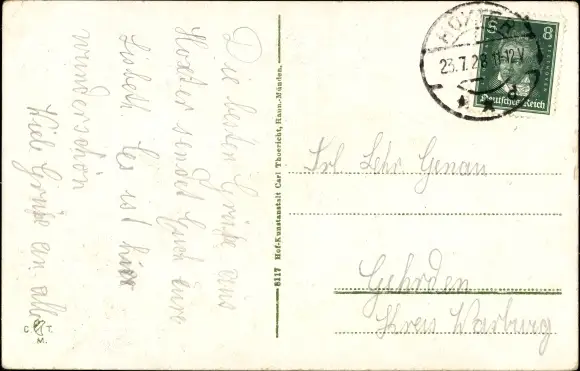 Die besten Grüße aus
Höxter sendet Euch eure
Lisbeth. Es ist hier
wunderschön
Viele Grüße an alle
C T.
M.
8117 Hof-Kunstanstalt Carl Thoericht, Hann.-Münden.
HÖXTER
23.7.28 11-12V
8 8
Deutsches Reich
Frl Lehr Genau
Gehrden
Kreis Warburg